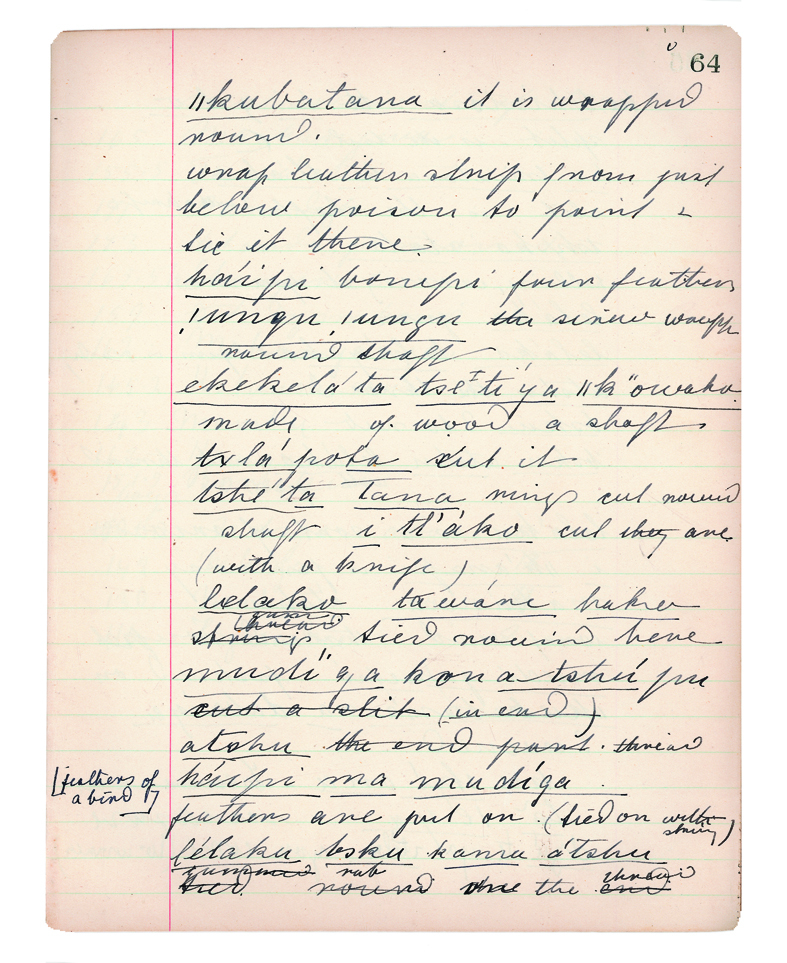 64
"kubatana it is wrapped
round.
wrap leather strip from just
below poison to point &
tie it there.
háipi bonepi four feathers
!ungu !ungu the sinew wrapp
round shaft
ekekeláta tseti'ya "k"owako
made of wood a shaft
txlá pota cut it
tshéta tana rings cut round
shaft i tl'áko cut they are
(with a knife)
lelako tawáne hake
thread
string tied round here
mudi"ga kona tshú pu
cut a slit (in end)
atshu the end part. thread
háipi ma mudíga
[feathers of
a bird]
feathers are put on. (tied on with
string)
lélaku tsku kama átshu
rub thread
tied round the the end